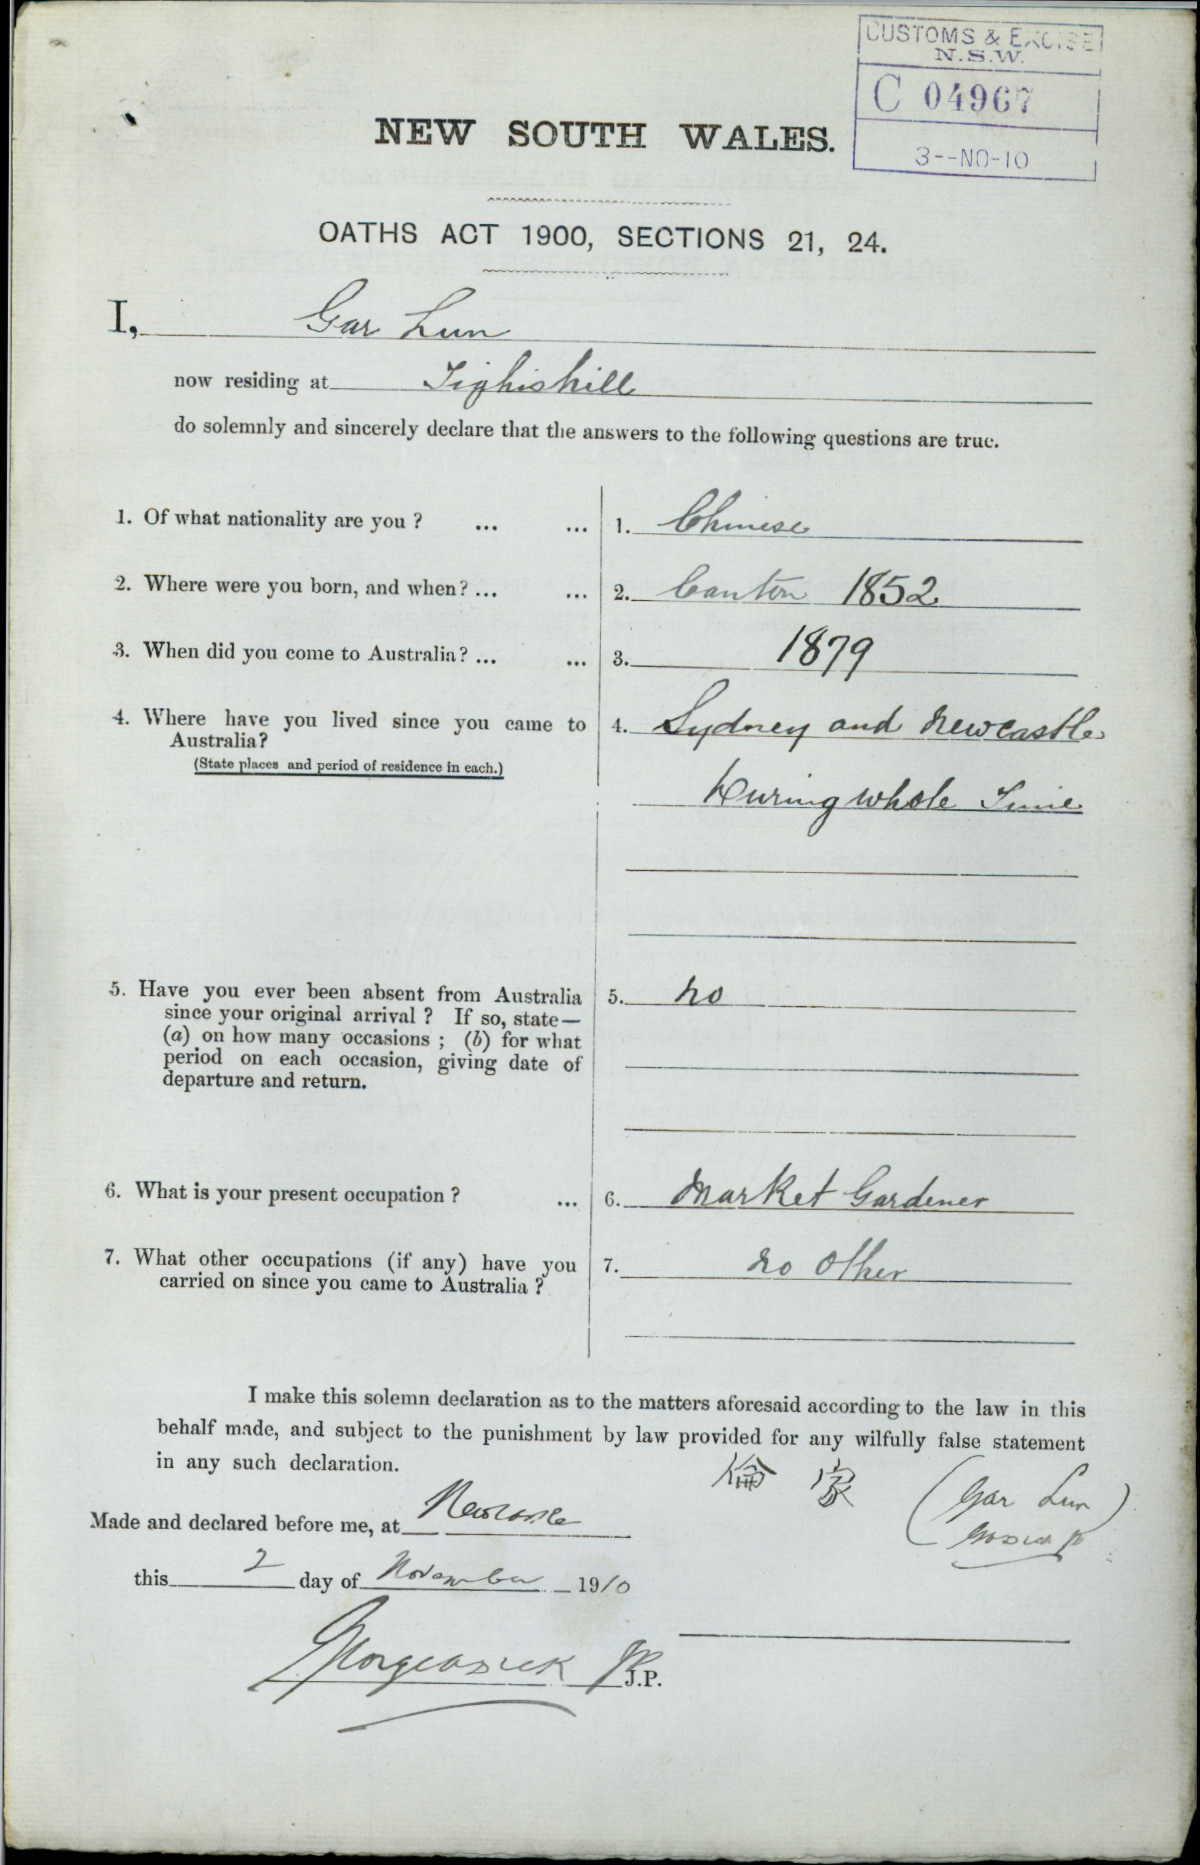 CUSTOMS & EXCISE
N.S.W.
C 04967
3--NO-10
NEW SOUTH WALES.
OATHS ACT 1900, SECTIONS 21, 24.
I, Gar Lun
now residing at Tighishill
do solemnly and sincerely declare that the answers to the following questions are true.
1. Of what nationality are you ? ... ... 1. Chinese
2. Where were you born, and when? ... ... 2. Canton 1852
3. When did you come to Australia? ... ... 3. 1879
4. Where have you lived since you came to 4. Sydney and Newcastle
Australia?
(State places and period of residence in each.)
During whole Time
5. Have you ever been absent from Australia 5. No
since your original arrival ? If so, state—
(a) on how many occasions ; (b) for what
period on each occasion, giving date of
departure and return.
6. What is your present occupation ? ... 6. Market Gardener
7. What other occupations (if any) have you 7. No other
carried on since you came to Australia ?
I make this solemn declaration as to the matters aforesaid according to the law in this
behalf made, and subject to the punishment by law provided for any wilfully false statement
in any such declaration.
倫 家 (Gar Lun)
Made and declared before me, at Newcastle
this 2 day of November 1910
JP
J.P.